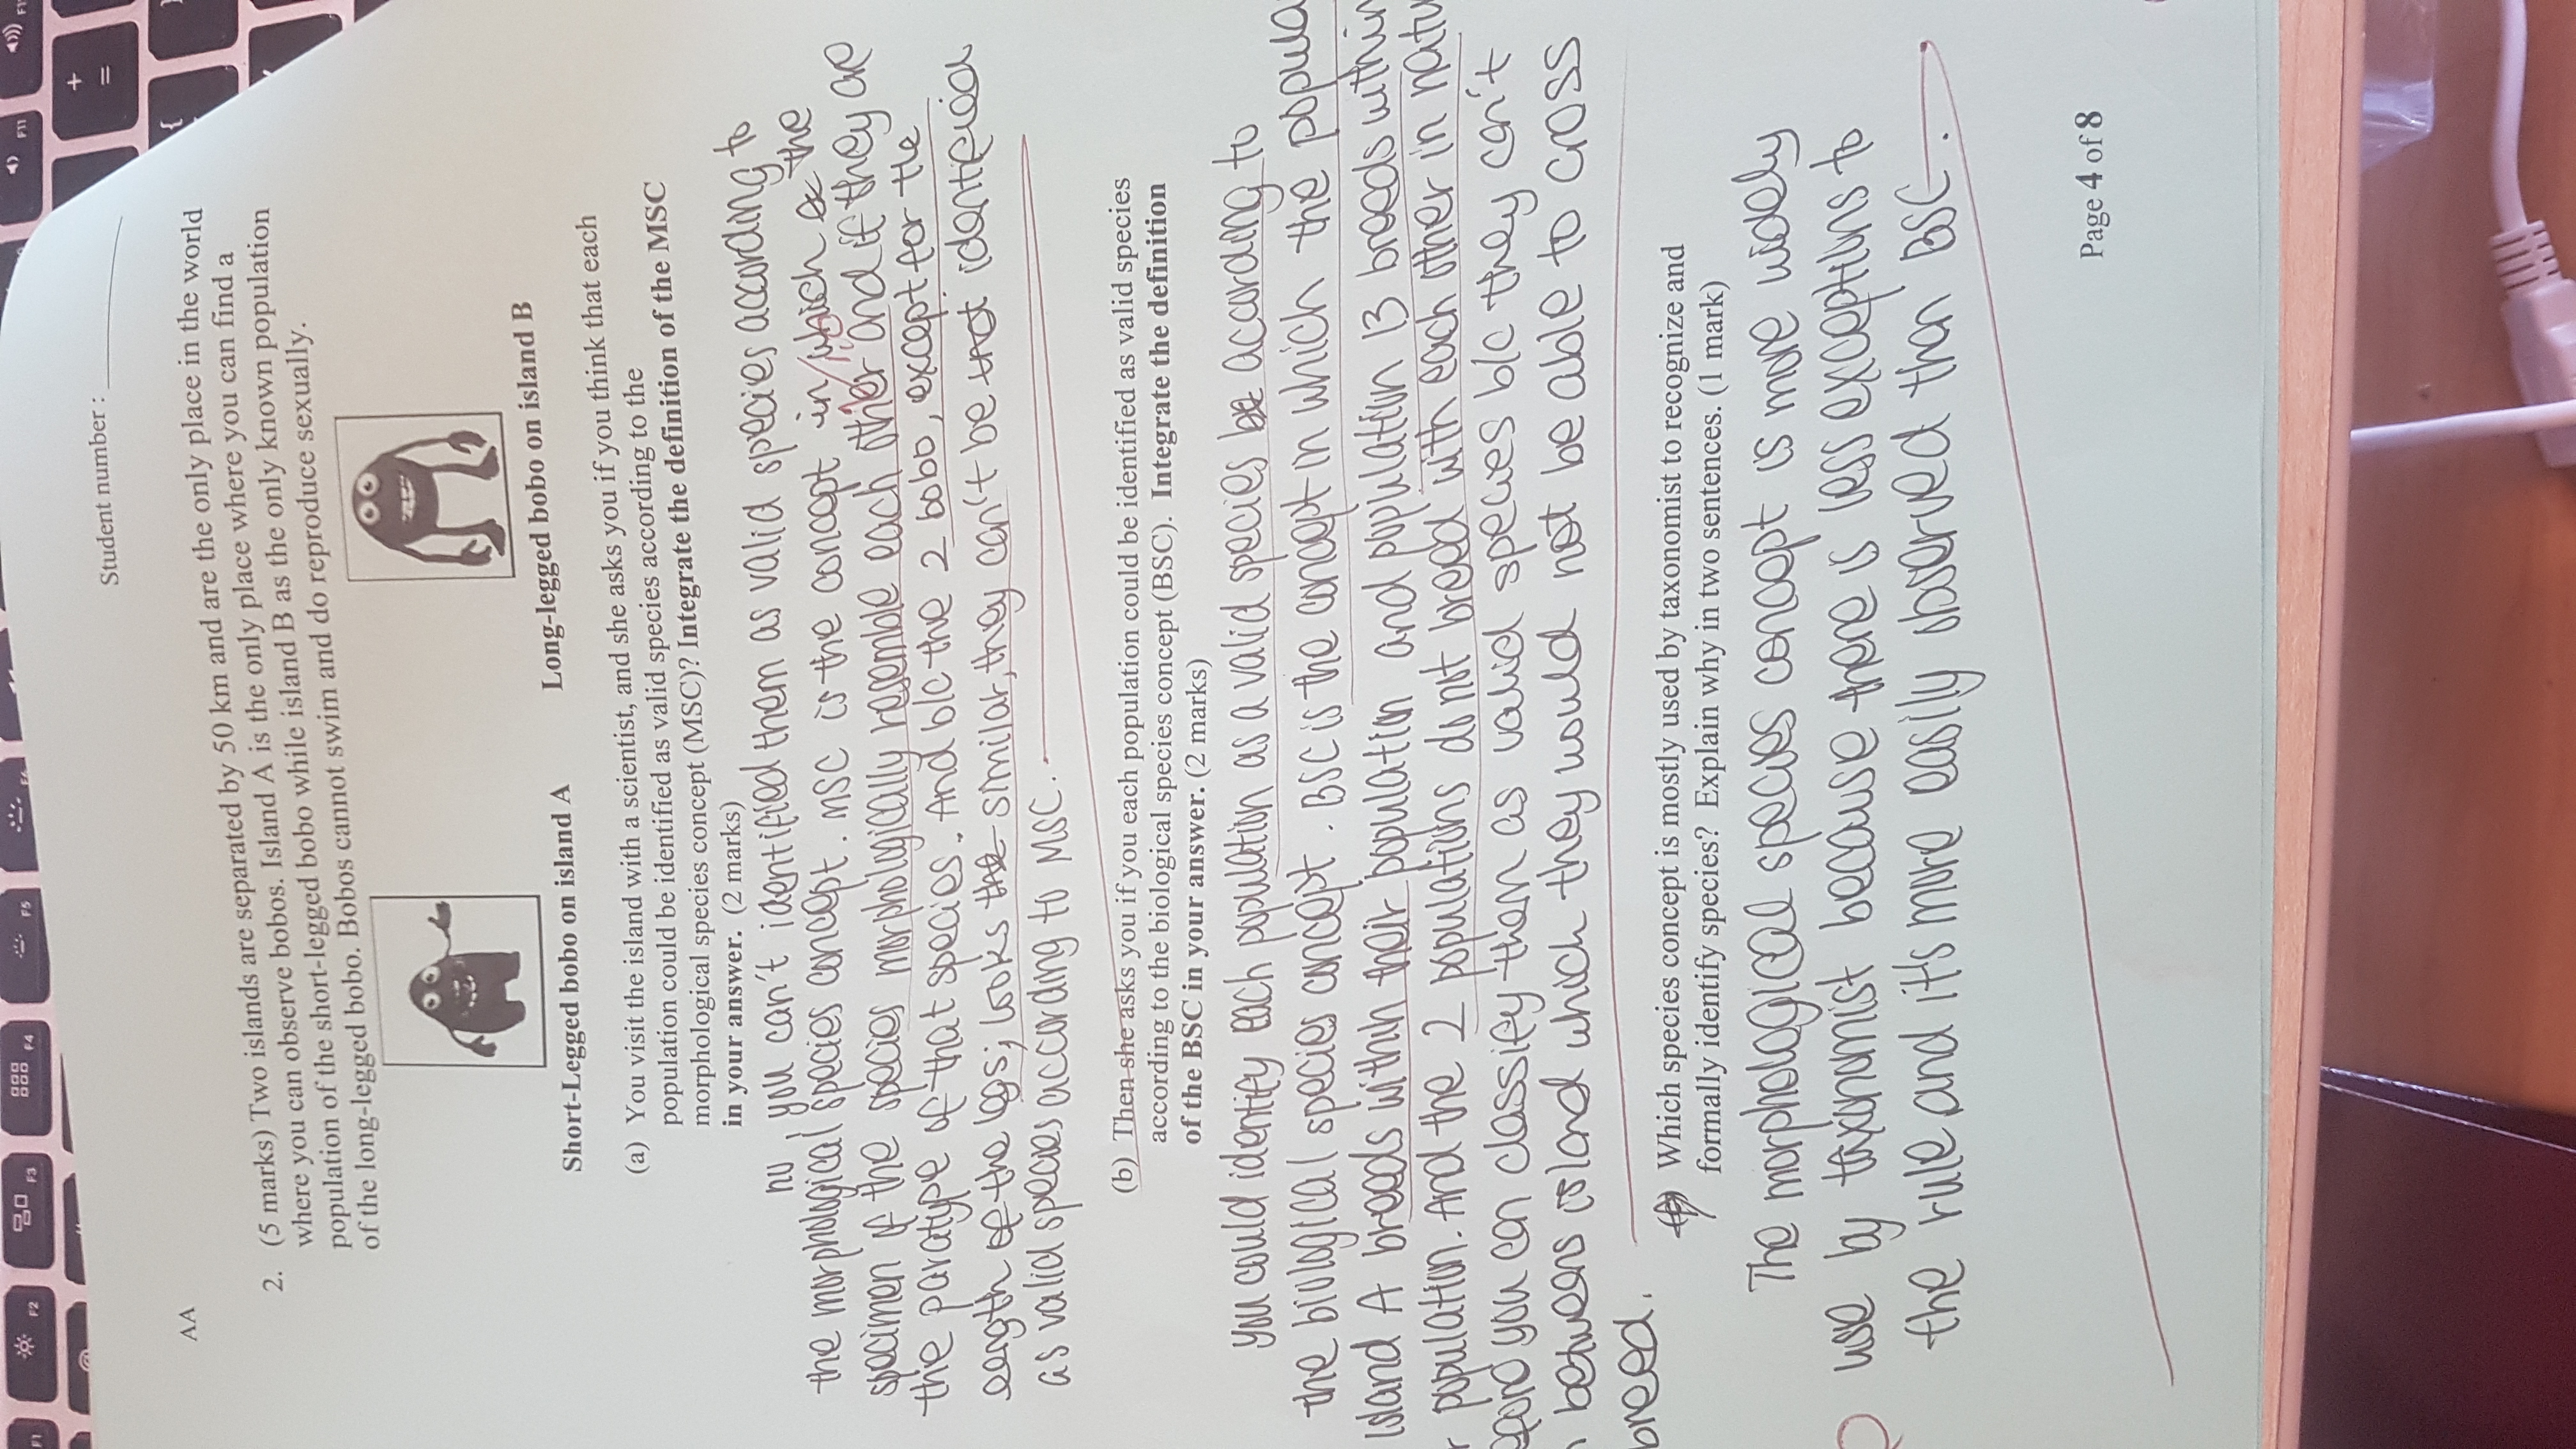 Student number :
AA
2. (5 marks) Two islands are separated by 50 km and are the only place in the world
where you can observe bobos. Island A is the only place where you can find a
population of the short-legged bobo while island B as the only known population
of the long-legged bobo. Bobos cannot swim and do reproduce sexually.
Short-Legged bobo on island A
Long-legged bobo on island B
(a) You visit the island with a scientist, and she asks you if you think that each
population could be identified as valid species according to the
morphological species concept (MSC)? Integrate the definition of the MSC
in your answer. (2 marks)
no you can't identified them as valid species according to
the morphological species concept. MSC is the concept in which the
specimen of the species morphologically resemble each other and if they are
the paratype of that species. And b/c the 2 bobo, except for the
length of the legs; looks similar, they can't be identified
as valid species according to MSC.
(b) Then she asks you if you each population could be identified as valid species
according to the biological species concept (BSC). Integrate the definition
of the BSC in your answer. (2 marks)
you could identify each population as a valid species according to
the biological species concept. BSC is the concept in which the popula
Island A breeds within their population and population B breeds within
population. And the 2 populations do not breed with each other in natu
and you can classify them as valid species b/c they can't
between island which they would not be able to cross
breed.
Which species concept is mostly used by taxonomist to recognize and
formally identify species? Explain why in two sentences. (1 mark)
The morphological species concept is more widely
use by taxonomist because there is less exceptions to
the rule and it's more easily observed than BSC.
Page 4 of 8
F1
F2
F3
F4
F5
F11
+
=
{